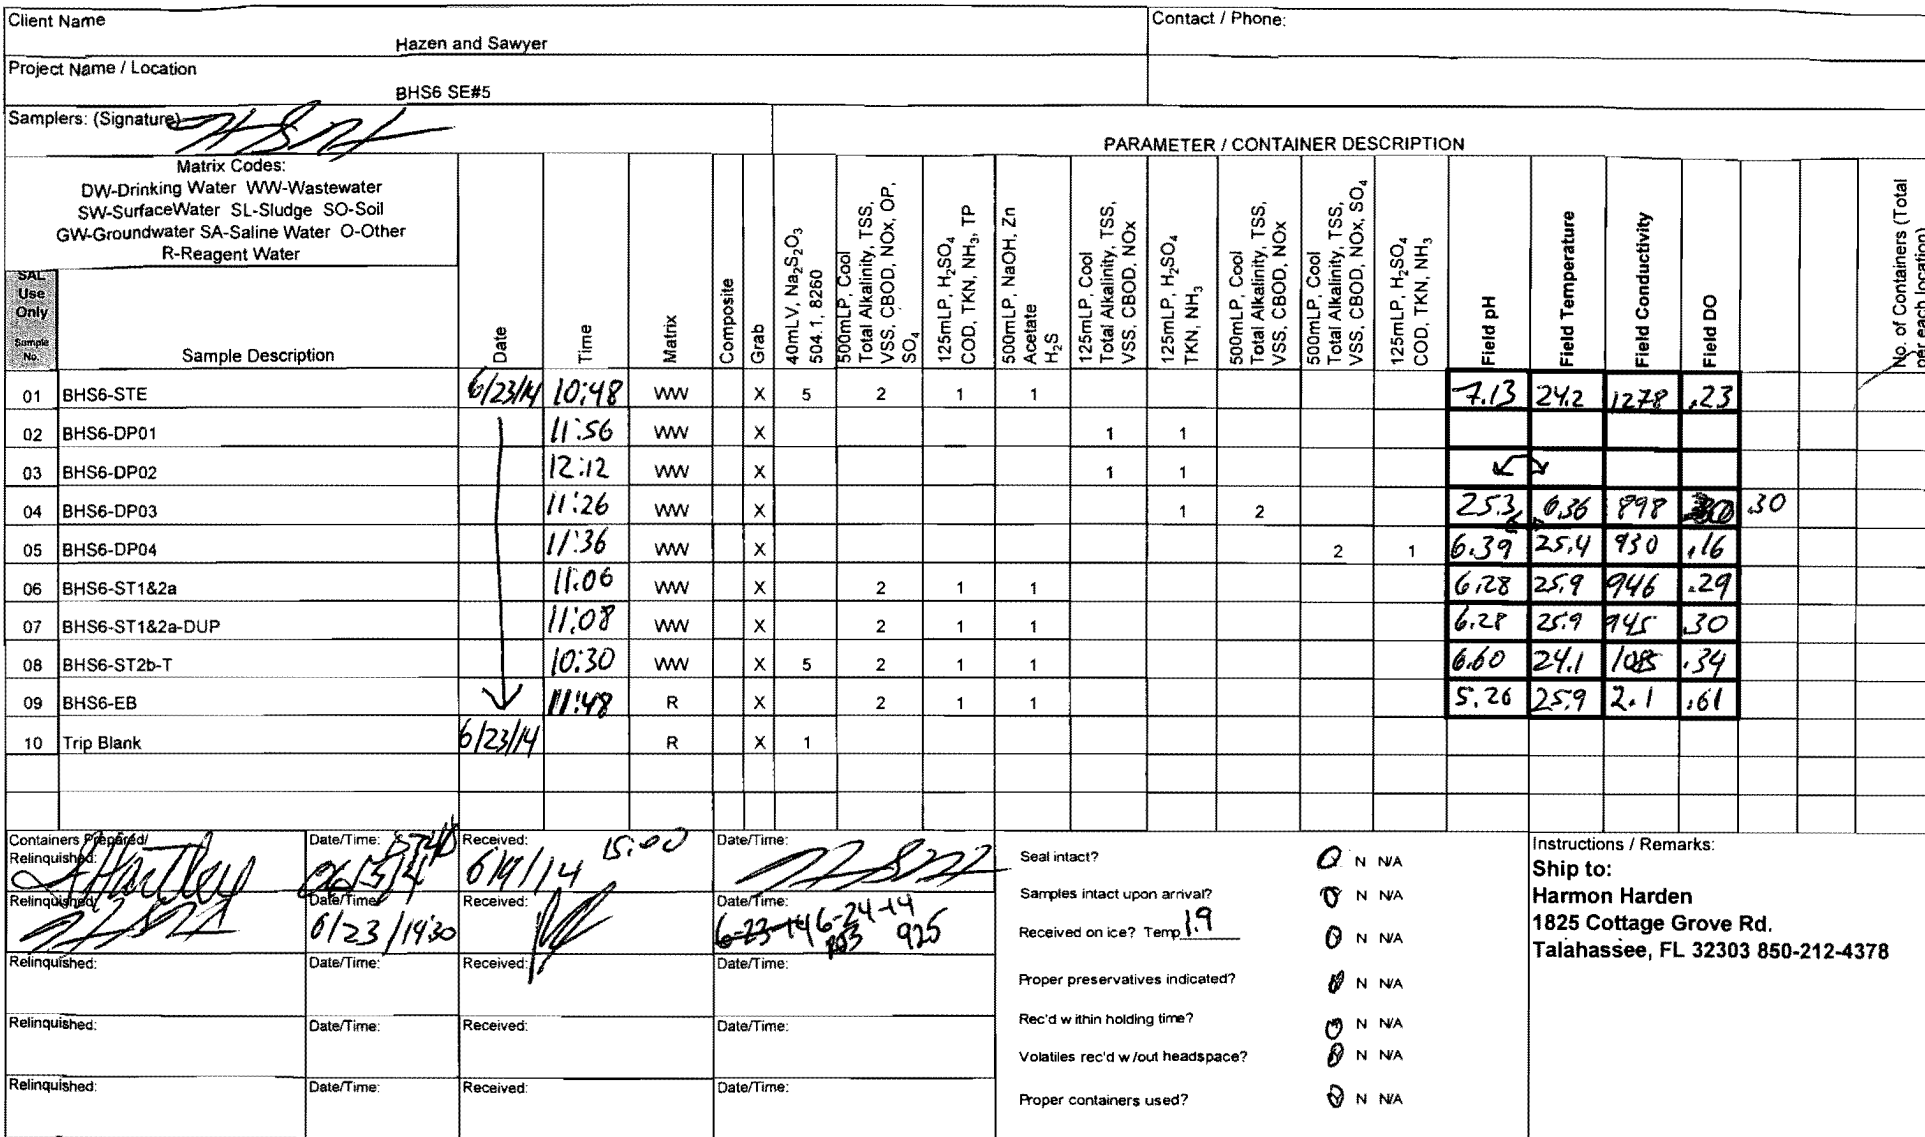 Client Name
Hazen and Sawyer
Contact / Phone:
Project Name / Location
BHS6 SE#5
Samplers: (Signature)
PARAMETER / CONTAINER DESCRIPTION
Matrix Codes:
DW-Drinking Water WW-Wastewater
SW-SurfaceWater SL-Sludge SO-Soil
GW-Groundwater SA-Saline Water O-Other
R-Reagent Water
SAL
Use
Only
Sample
No.
Sample Description
Date
Time
Matrix
Composite
Grab
40mLV, Na₂S₂O₃
504.1, 8260
500mLP, Cool
Total Alkalinity, TSS,
VSS, CBOD, NOx, OP,
SO₄
125mLP, H₂SO₄
COD, TKN, NH₃, TP
500mLP, NaOH, Zn
Acetate
H₂S
125mLP, Cool
Total Alkalinity, TSS,
VSS, CBOD, NOx
125mLP, H₂SO₄
TKN, NH₃
500mLP, Cool
Total Alkalinity, TSS,
VSS, CBOD, NOx
500mLP, Cool
Total Alkalinity, TSS,
VSS, CBOD, NOx, SO₄
125mLP, H₂SO₄
COD, TKN, NH₃
Field pH
Field Temperature
Field Conductivity
Field DO
No. of Containers (Total
per each location)
01 BHS6-STE 6/23/14 10:48 WW X 5 2 1 1 7.13 24.2 1278 .23
02 BHS6-DP01 11:56 WW X 1 1
03 BHS6-DP02 12:12 WW X 1 1
04 BHS6-DP03 11:26 WW X 1 2 25.3 6.36 898 .30
05 BHS6-DP04 11:36 WW X 2 1 6.39 25.4 930 .16
06 BHS6-ST1&2a 11:06 WW X 2 1 1 6.28 25.9 946 .29
07 BHS6-ST1&2a-DUP 11:08 WW X 2 1 1 6.28 25.9 945 .30
08 BHS6-ST2b-T 10:30 WW X 5 2 1 1 6.60 24.1 1085 .34
09 BHS6-EB 11:48 R X 2 1 1 5.26 25.9 2.1 .61
10 Trip Blank 6/23/14 R X 1
Containers Prepared/
Relinquished:
Date/Time:
Received:
6/9/14 15:00
Date/Time:
Relinquished:
Date/Time:
6/23/1430
Received:
Date/Time:
6-23-14 6-24-14
925
Relinquished:
Date/Time:
Received:
Date/Time:
Relinquished:
Date/Time:
Received:
Date/Time:
Relinquished:
Date/Time:
Received:
Date/Time:
Seal intact? N N/A
Samples intact upon arrival? N N/A
Received on ice? Temp 1.9 N N/A
Proper preservatives indicated? N N/A
Rec'd within holding time? N N/A
Volatiles rec'd w/out headspace? N N/A
Proper containers used? N N/A
Instructions / Remarks:
Ship to:
Harmon Harden
1825 Cottage Grove Rd.
Talahassee, FL 32303 850-212-4378